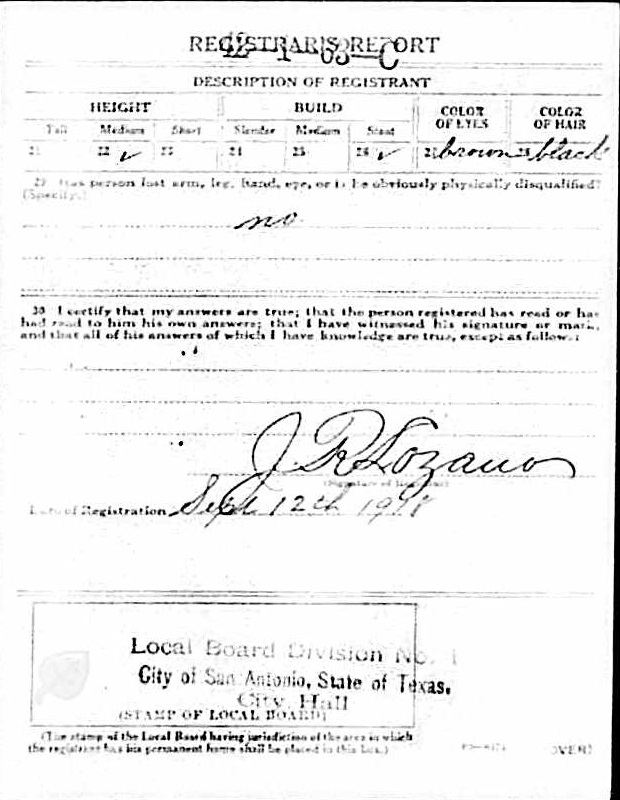 REGISTRAR'S REPORT
42-1-63-C
DESCRIPTION OF REGISTRANT
HEIGHT BUILD COLOR OF EYES COLOR OF HAIR
Tall Medium Short Slender Medium Stout
21 22 ✓ 23 24 25 26 ✓ 27 brown 28 black
29 Has person lost arm, leg, hand, eye, or is he obviously physically disqualified?
(Specify.)
no
30 I certify that my answers are true; that the person registered has read or has
had read to him his own answers; that I have witnessed his signature or mark,
and that all of his answers of which I have knowledge are true, except as follows:
J R Lozano
(Signature of Registrar)
Date of Registration Sept 12th 1918
Local Board Division No. 1
City of San Antonio, State of Texas.
City Hall
(STAMP OF LOCAL BOARD)
(The stamp of the Local Board having jurisdiction of the area in which
the registrant has his permanent home shall be placed in this box.)
(OVER)